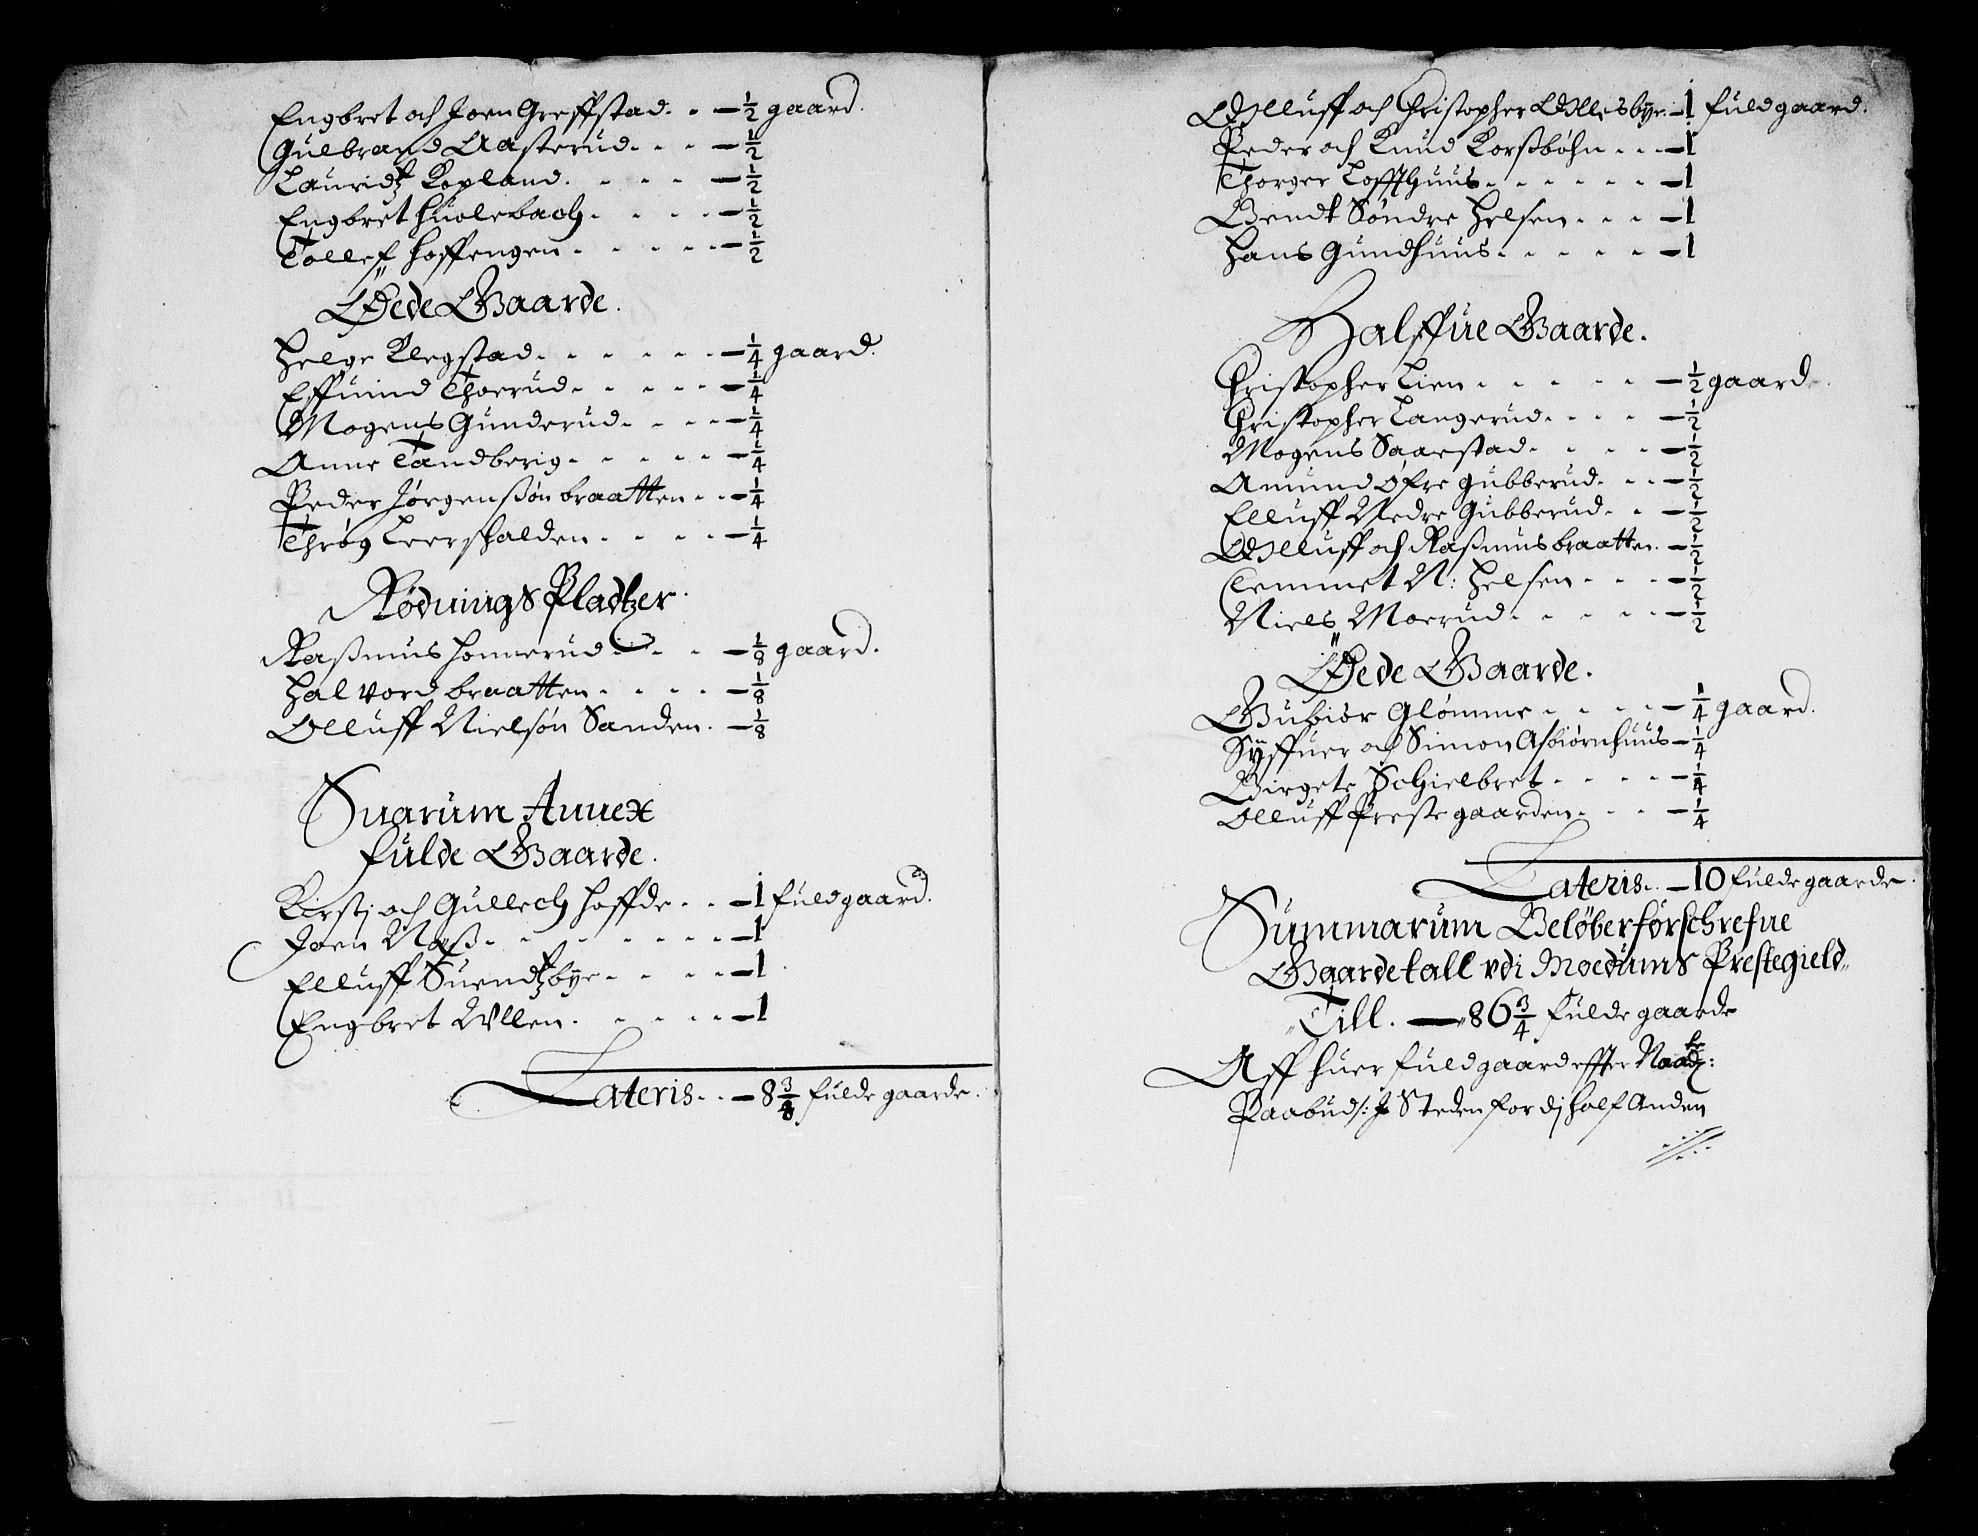 Engbret och Joen Greffstad. . — 1/2 gaard.
Gulbrand Aasterud. . . — 1/2
Lauridtz Kopland. . . . — 1/2
Engbret Huolebach. . . . — 1/2
Tollef Hoffengen. . . . . — 1/2
Øede Gaarde.
Helge Klegstad. . . . . . — 1/4 gaard.
Effuind Thoerud. . . . . — 1/4
Mogens Gunderud. . . . — 1/4
Anne Tandberig. . . . . — 1/4
Peder Jørgenßøn braatten. . — 1/4
Thrøg Leerschalden. . . . — 1/4
Rødnings Pladtzer.
Raßmus Honnerud. . . . — 1/8 gaard.
Halvord braatten. . . . — 1/8
Olluff Nielsøn Sanden. — 1/8
Snarum Annex
fulde Gaarde.
Kirstj och Gullech Hoffde. . . — 1 fuld gaard.
Joen Næß. . . . . . . — 1
Elluff Suendtzbye. . . . . — 1
Engbret Ullen. . . . . — 1
Lateris. . . — 8 3/8 fulde gaarde.
Olluff och Christopher Ollisbye. — 1 fuld gaard.
Peder och Knud Korßbøhn . . . — 1
Thorger Loffthuus. . . . . . — 1
Bendt Søndre Helsen. . . . — 1
Hans Gundhuus. . . . . — 1
Halffue Gaarde.
Christopher Lien . . . . . — 1/2 gaard.
Christopher Langerud. . . . — 1/2
Mogens Saarstad. . . . — 1/2
Amund Øfre Gubberud. . . — 1/2
Elluff Nedre Gubberud. . — 1/2
Olluff och Raßmus braatten. — 1/2
Clemmet N: Helsen . . . — 1/2
Niels Moerud. . . . . — 1/2
Øede Gaarde.
Gubiør Glømme . . . . — 1/4 gaard.
Syffuer och Simon Asbiørnhuus — 1/4
Birgete Schielbret. . . . — 1/4
Olluff Prestegaarden. . . . — 1/4
Lateris. . — 10 fulde gaarde.
Summarum Beløber forschrefne
Gaardetall vdi Moedums Prestegield
Till. — 86 3/4 fulde gaarde
Aff huer fuld gaard effter
Paabud /: J Steden for dj half Anden